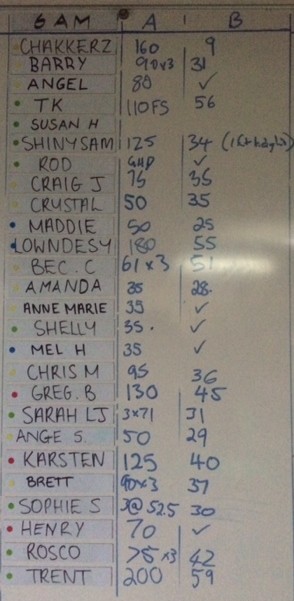 6AM A B
CHAKKERZ 160 9
BARRY 90x3 31
ANGEL 80 ✓
TK 110FS 56
SUSAN H
SHINYSAM 125 34
ROD GHD ✓
CRAIG J 75 35
CRYSTAL 50 35
MADDIE 50 25
LOWNDESY 180 55
BEC.C 61x3 51
AMANDA 35 28
ANNE MARIE 35 ✓
SHELLY 35 ✓
MEL H 35 ✓
CHRIS M 95 36
GREG.B 130 45
SARAH LJ 3x71 31
ANGE S. 50 29
KARSTEN 125 40
BRETT 90x3 37
SOPHIE S 3@ 52.5 30
HENRY 70 ✓
ROSCO 75x3 42
TRENT 200 59